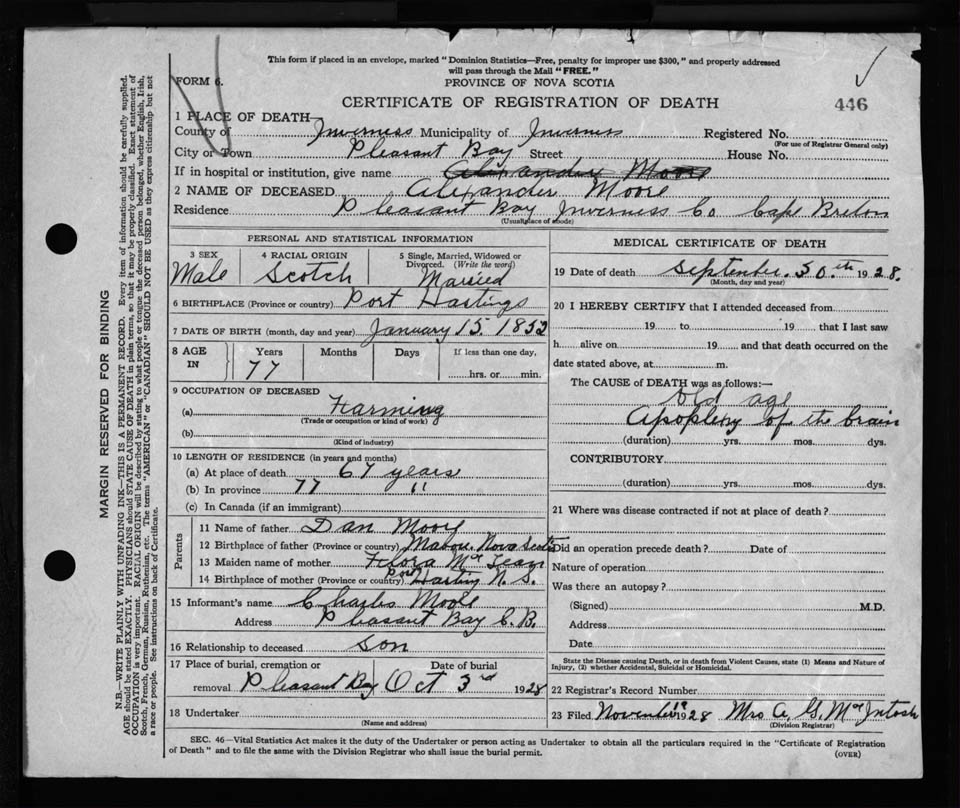 This form if placed in an envelope, marked "Dominion Statistics—Free, penalty for improper use $300," and properly addressed
will pass through the Mail "FREE."
FORM 6.
PROVINCE OF NOVA SCOTIA
CERTIFICATE OF REGISTRATION OF DEATH
446
1 PLACE OF DEATH—
County of Inverness Municipality of Inverness Registered No.
(For use of Registrar General only)
City or Town Pleasant Bay Street House No.
If in hospital or institution, give name Alexander Moore
2 NAME OF DECEASED Alexander Moore
Residence Pleasant Bay Inverness Co Cape Breton
(Usual place of abode)
PERSONAL AND STATISTICAL INFORMATION
3 SEX 4 RACIAL ORIGIN 5 Single, Married, Widowed or
Divorced. (Write the word)
Male Scotch Married
6 BIRTHPLACE (Province or country) Port Hastings
7 DATE OF BIRTH (month, day and year) January 15 1852
8 AGE IN Years Months Days If less than one day,
77 hrs. or min.
9 OCCUPATION OF DECEASED
(a) Farming
(Trade or occupation or kind of work)
(b)
(Kind of industry)
10 LENGTH OF RESIDENCE (in years and months)
(a) At place of death 67 years
(b) In province 77 "
(c) In Canada (if an immigrant)
Parents
11 Name of father Dan Moore
12 Birthplace of father (Province or country) Mabou. Nova Scotia
13 Maiden name of mother Flora McLean
14 Birthplace of mother (Province or country) Port Hasting N. S.
15 Informant's name Charles Moore
Address Pleasant Bay C. B.
16 Relationship to deceased son
17 Place of burial, cremation or Date of burial
removal Pleasant Bay Oct 3rd 1928
18 Undertaker
(Name and address)
MEDICAL CERTIFICATE OF DEATH
19 Date of death September 30th 1928.
(Month, day and year)
20 I HEREBY CERTIFY that I attended deceased from
19 to 19 that I last saw
h alive on 19 and that death occurred on the
date stated above, at m.
The CAUSE of DEATH was as follows:—
Old age
Apoplexy of the brain
(duration) yrs. mos. dys.
CONTRIBUTORY
(duration) yrs. mos. dys.
21 Where was disease contracted if not at place of death?
Did an operation precede death? Date of
Nature of operation
Was there an autopsy?
(Signed) M.D.
Address
Date
State the Disease causing Death, or in death from Violent Causes, state (1) Means and Nature of
Injury, (2) whether Accidental, Suicidal or Homicidal.
22 Registrar's Record Number
23 Filed November 1928 Mrs A. G. McIntosh
(Division Registrar)
SEC. 46—Vital Statistics Act makes it the duty of the Undertaker or person acting as Undertaker to obtain all the particulars required in the "Certificate of Registration
of Death" and to file the same with the Division Registrar who shall issue the burial permit.
(OVER)
MARGIN RESERVED FOR BINDING
N.B.—WRITE PLAINLY WITH UNFADING INK—THIS IS A PERMANENT RECORD. Every item of information should be carefully supplied.
AGE should be stated EXACTLY. PHYSICIANS should STATE CAUSE OF DEATH in plain terms, so that it may be properly classified. Exact statement of
OCCUPATION is very important. RACIAL ORIGIN will be described by stating to what people or tongue the deceased person belonged, whether English, Irish,
Scotch, French, German, Russian, Ruthenian, etc. The terms "AMERICAN" or "CANADIAN" SHOULD NOT BE USED as they express citizenship but not
a race or people. See instructions on back of Certificate.